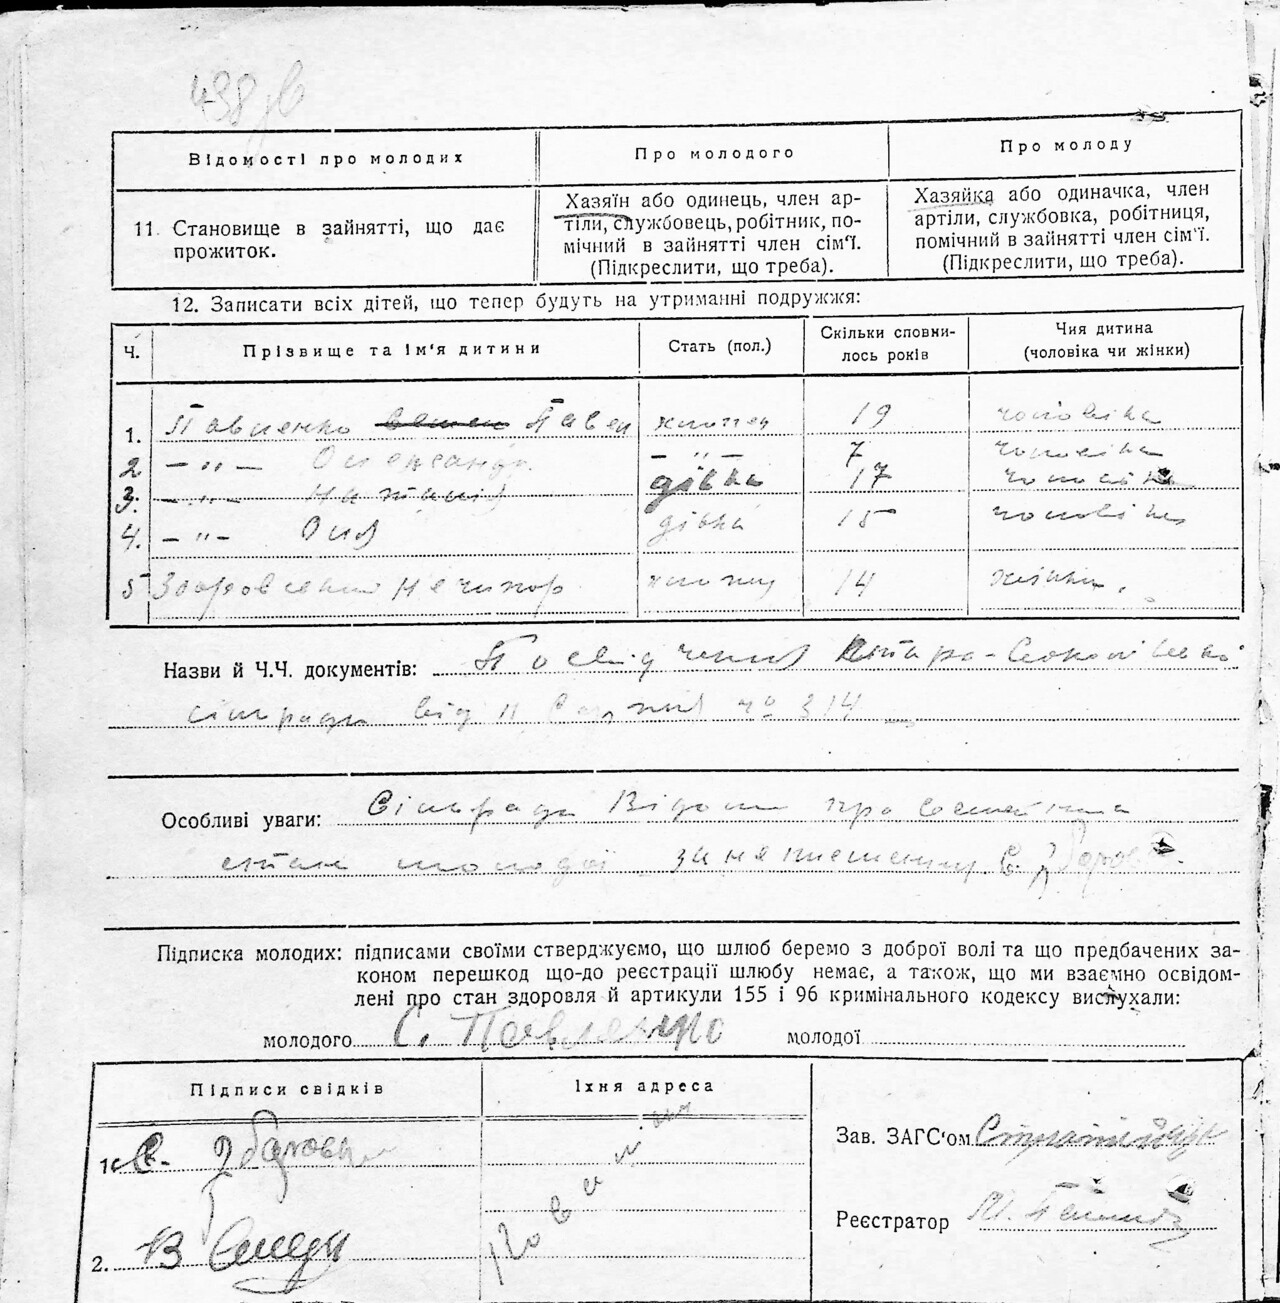 Відомості про молодих
Про молодого
Про молоду
11. Становище в зайнятті, що дає
прожиток.
Хазяїн або одинець, член ар-
тіли, службовець, робітник, по-
мічний в зайнятті член сім'ї.
(Підкреслити, що треба).
Хазяйка або одиначка, член
артіли, службовка, робітниця,
помічний в зайнятті член сім'ї.
(Підкреслити, що треба).
12. Записати всіх дітей, що тепер будуть на утриманні подружжя:
Ч.
Прізвище та ім'я дитини
Стать (пол.)
Скільки сповни-
лось років
Чия дитина
(чоловіка чи жінки)
1. Павленко Павел хлопец 19 чоловіка
2 — " — — " — 7 чоловіка
3. — " — Наталія дівка 17 чоловіка
4. — " — Оля дівка 15 чоловіка
5 Нечипор хлопец 14 жінки.
Назви й Ч.Ч. документів: Посвідчення
сільради від 11 № 314
Особливі уваги: Сільради Відом про
стан молодої
Підписка молодих: підписами своїми стверджуємо, що шлюб беремо з доброї волі та що предбачених за-
коном перешкод що-до реєстрації шлюбу немає, а також, що ми взаємно освідом-
лені про стан здоровля й артикули 155 і 96 кримінального кодексу вислухали:
молодого С. Павленко молодої
Підписи свідків
Їхня адреса
1.
2. В
Зав. ЗАГС'ом
Реєстратор